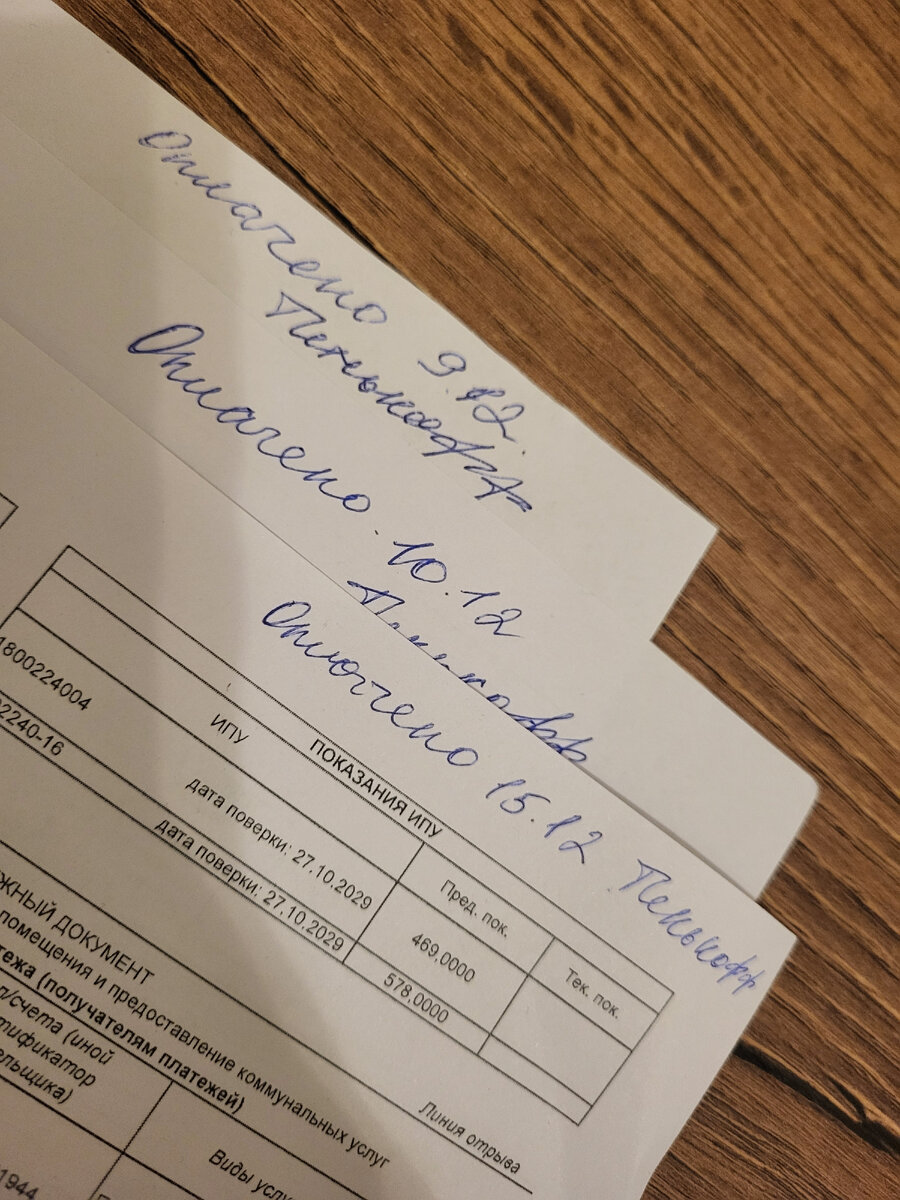 Оплачено 9.12
Пенькофф
Оплачено. 10.12
Пенькофф
Оплочено 15.12 Пенькофф
ПОКАЗАНИЯ ИПУ
ИПУ
Пред. пок.
Тек. пок.
1800224004
дата поверки: 27.10.2029
469,0000
2240-16
дата поверки: 27.10.2029
578,0000
Линия отрыва
ЖНЫЙ ДОКУМЕНТ
помещения и предоставление коммунальных услуг
тежа (получателям платежей)
л/счета (иной
тификатор
ельщика)
Виды услу
1944